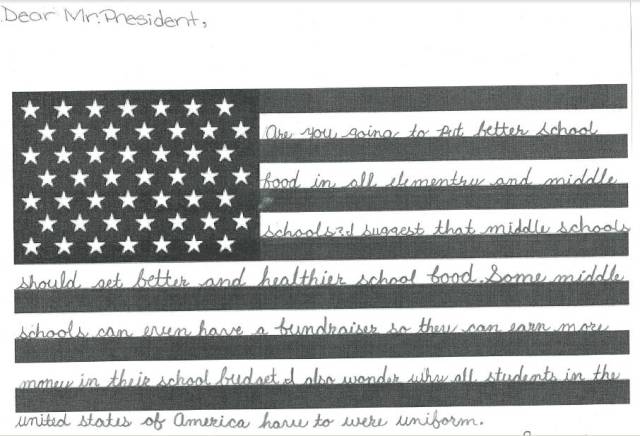 Dear Mr. President,
Are you going to put better school
food in all elementry and middle
schools? I suggest that middle schools
should get better and healthier school food. Some middle
schools can even have a fundraiser so they can earn more
money in their school budget. I also wonder why all students in the
united states of America have to were uniform.